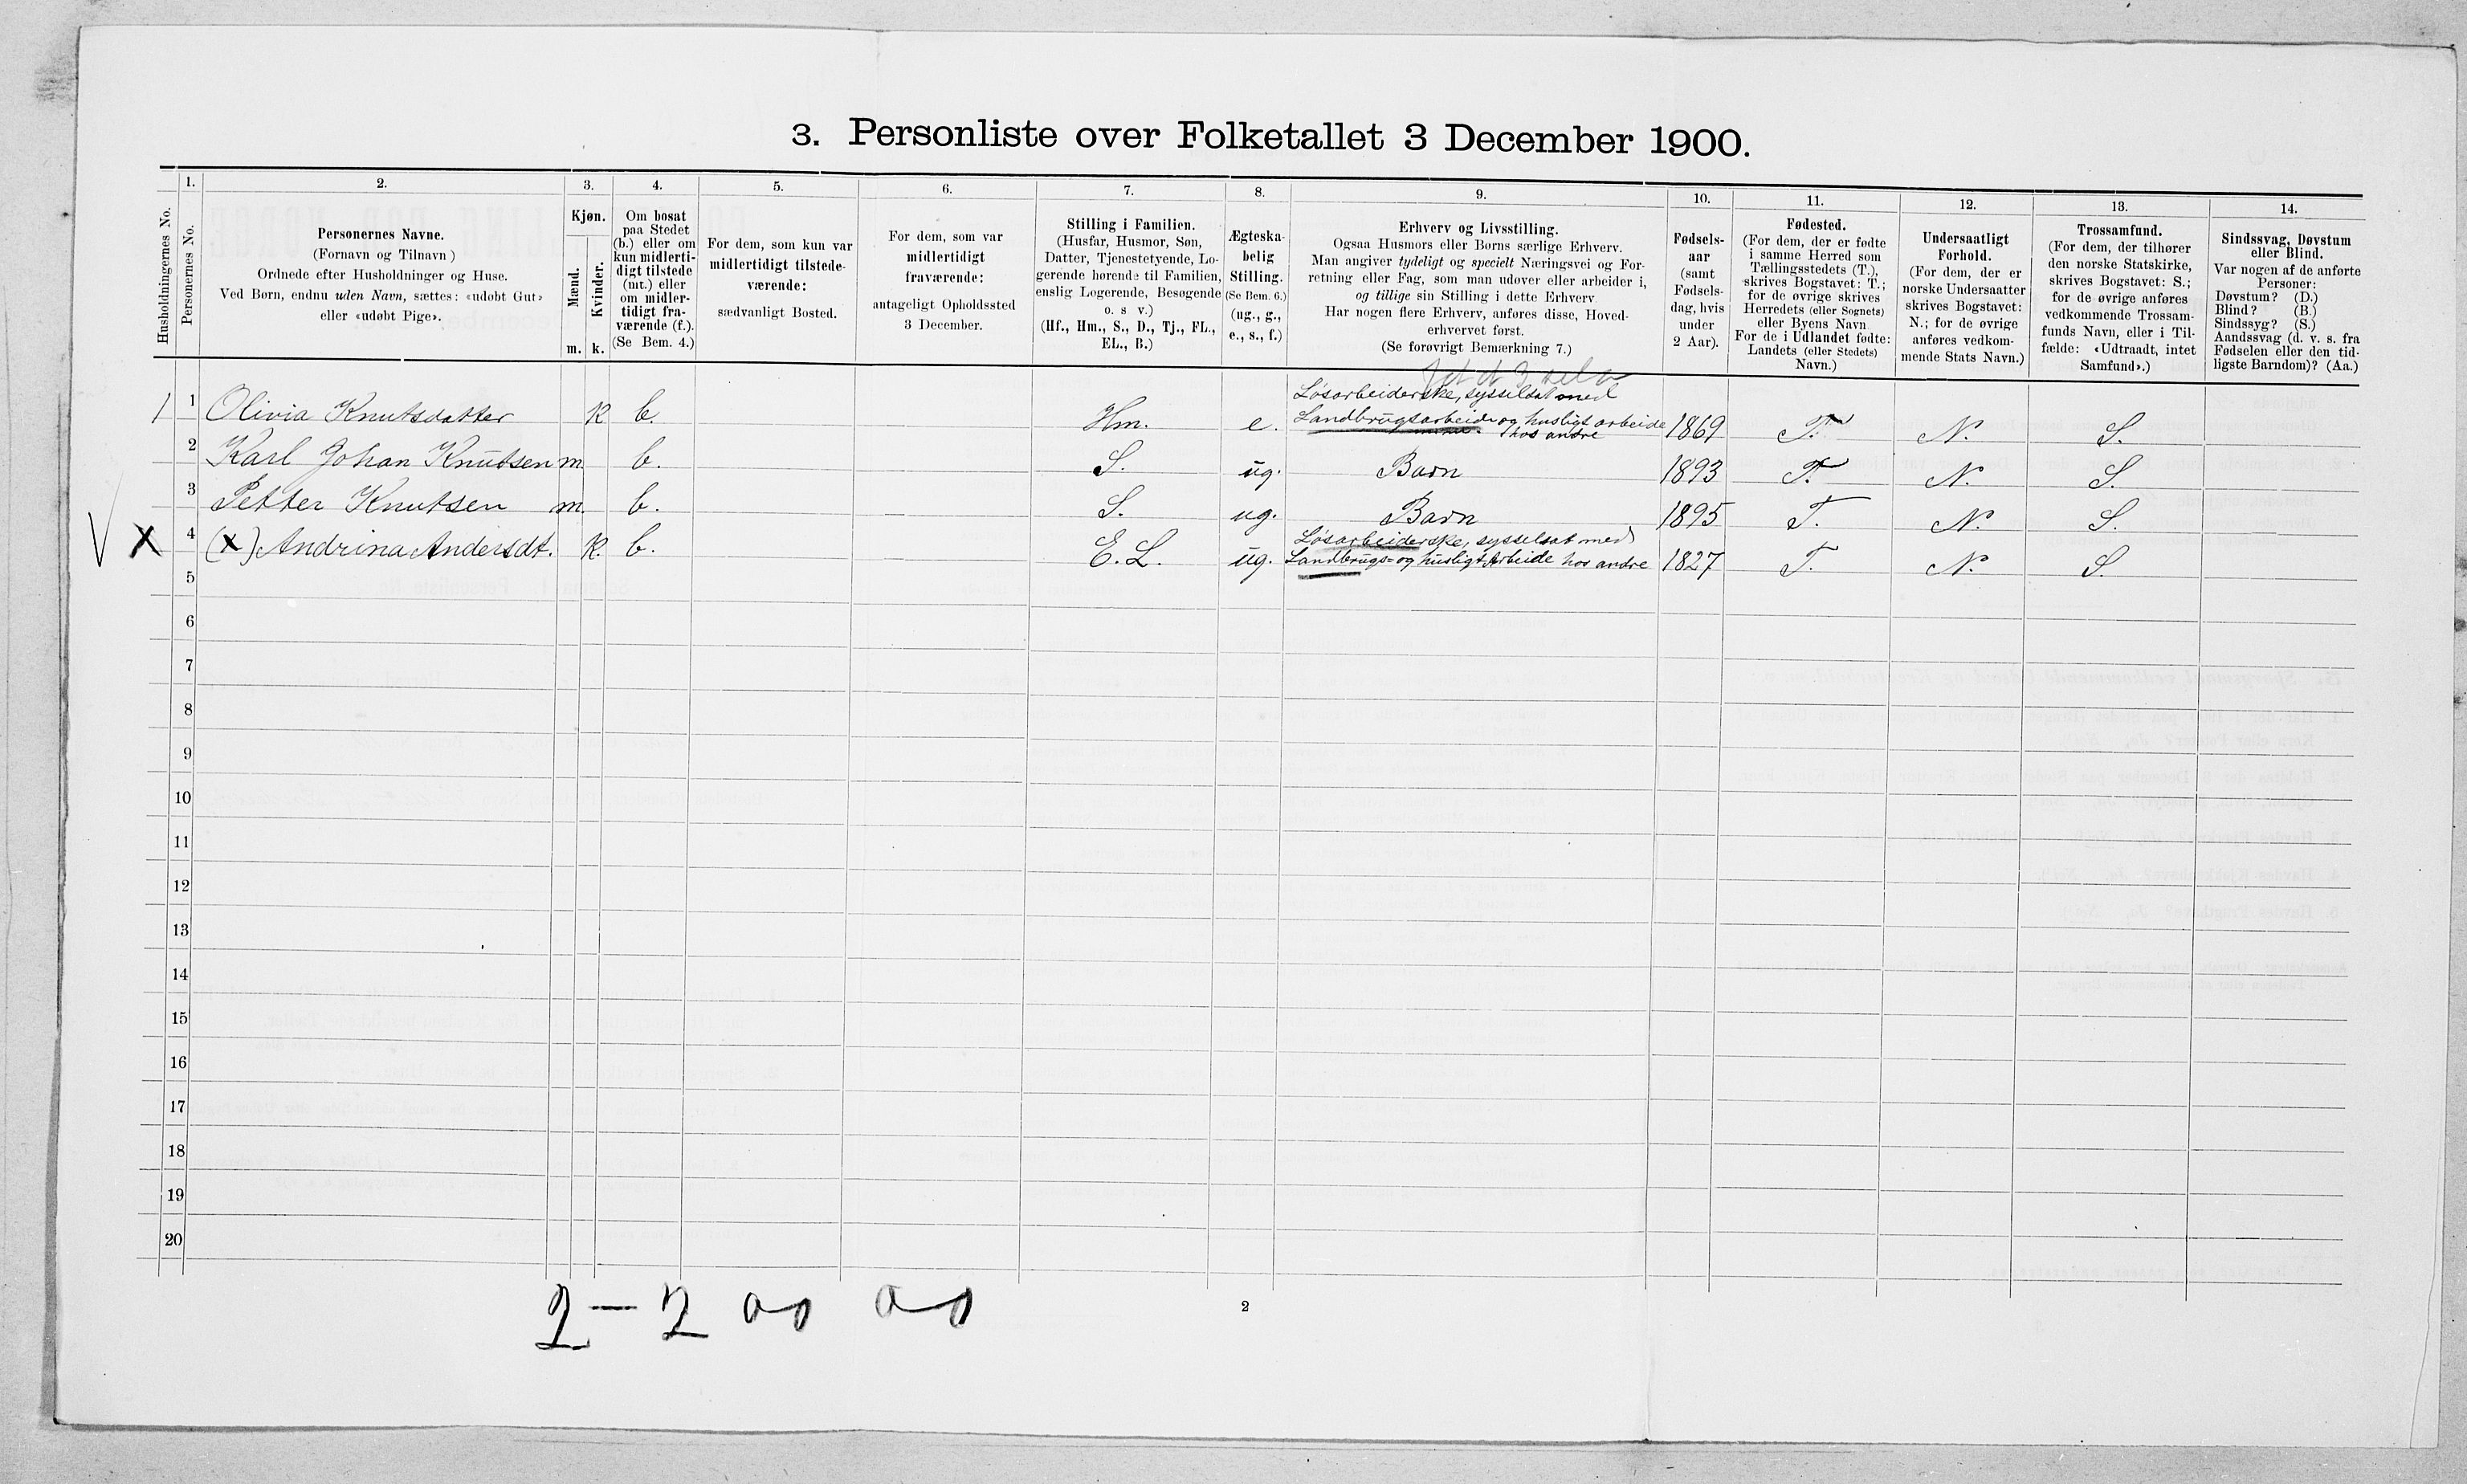 3. Personliste over Folketallet 3 December 1900.
1. 2. 3. 4. 5. 6. 7. 8. 9. 10. 11. 12. 13. 14.
Husholdningernes No.
Personernes No.
Personernes Navne.
(Fornavn og Tilnavn)
Ordnede efter Husholdninger og Huse.
Ved Børn, endnu uden Navn, sættes: «udøbt Gut»
eller «udøbt Pige».
Kjøn.
Mænd.
Kvinder.
m. k.
Om bosat
paa Stedet
(b.) eller om
kun midlerti-
digt tilstede
(mt.) eller
om midler-
tidigt fra-
værende (f.).
(Se Bem. 4.)
For dem, som kun var
midlertidigt tilstede-
værende:
sædvanligt Bosted.
For dem, som var
midlertidigt
fraværende:
antageligt Opholdssted
3 December.
Stilling i Familien.
(Husfar, Husmor, Søn,
Datter, Tjenestetyende, Lo-
gerende hørende til Familien,
enslig Logerende, Besøgende
o. s v.)
(Hf., Hm., S., D., Tj., FL.,
EL., B.)
Ægteska-
belig
Stilling.
(Se Bem. 6.)
(ug., g.,
e., s., f.)
Erhverv og Livsstilling.
Ogsaa Husmors eller Børns særlige Erhverv.
Man angiver tydeligt og specielt Næringsvei og For-
retning eller Fag, som man udøver eller arbeider i,
og tillige sin Stilling i dette Erhverv
Har nogen flere Erhverv, anføres disse, Hoved-
erhvervet først.
(Se forøvrigt Bemærkning 7.)
Fødsels-
aar
(samt
Fødsels-
dag, hvis
under
2 Aar).
Fødested.
(For dem, der er fødte
i samme Herred som
Tællingsstedets (T.),
skrives Bogstavet: T.;
for de øvrige skrives
Herredets (eller Sognets)
eller Byens Navn
For de i Udlandet fødte:
Landets (eller Stedets)
Navn.)
Undersaatligt
Forhold.
(For dem, der er
norske Undersaatter
skrives Bogstavet:
N.; for de øvrige
anføres vedkom-
mende Stats Navn.)
Trossamfund.
(For dem, der tilhører
den norske Statskirke,
skrives Bogstavet: S.;
for de øvrige anføres
vedkommende Trossam-
funds Navn, eller i Til-
fælde: «Udtraadt, intet
Samfund».)
Sindssvag, Døvstum
eller Blind.
Var nogen af de anførte
Personer:
Døvstum? (D.)
Blind? (B.)
Sindssyg? (S.)
Aandssvag (d. v. s. fra
Fødselen eller den tid-
ligste Barndom)? (Aa.)
1 1 Olivia Knutsdatter k b. Hm. e. Løsarbeiderske, sysselsat med
Landbrugsarbeide og husligt arbeide
hos andre 1869 T. N. S.
2 Karl Johan Knutsen m. b. S. ug. Barn 1893 T. N. S.
3 Petter Knutsen m. b. S. ug. Barn 1895 T. N. S.
X 4 (x) Andrina Andersdt. k. b. E. L. ug. Løsarbeiderske, sysselsat med
Landbrugs- og husligt Arbeide hos andre 1827 T. N. S.
5
6
7
8
9
10
11
12
13
14
15
16
17
18
19
20
2 – 2
2